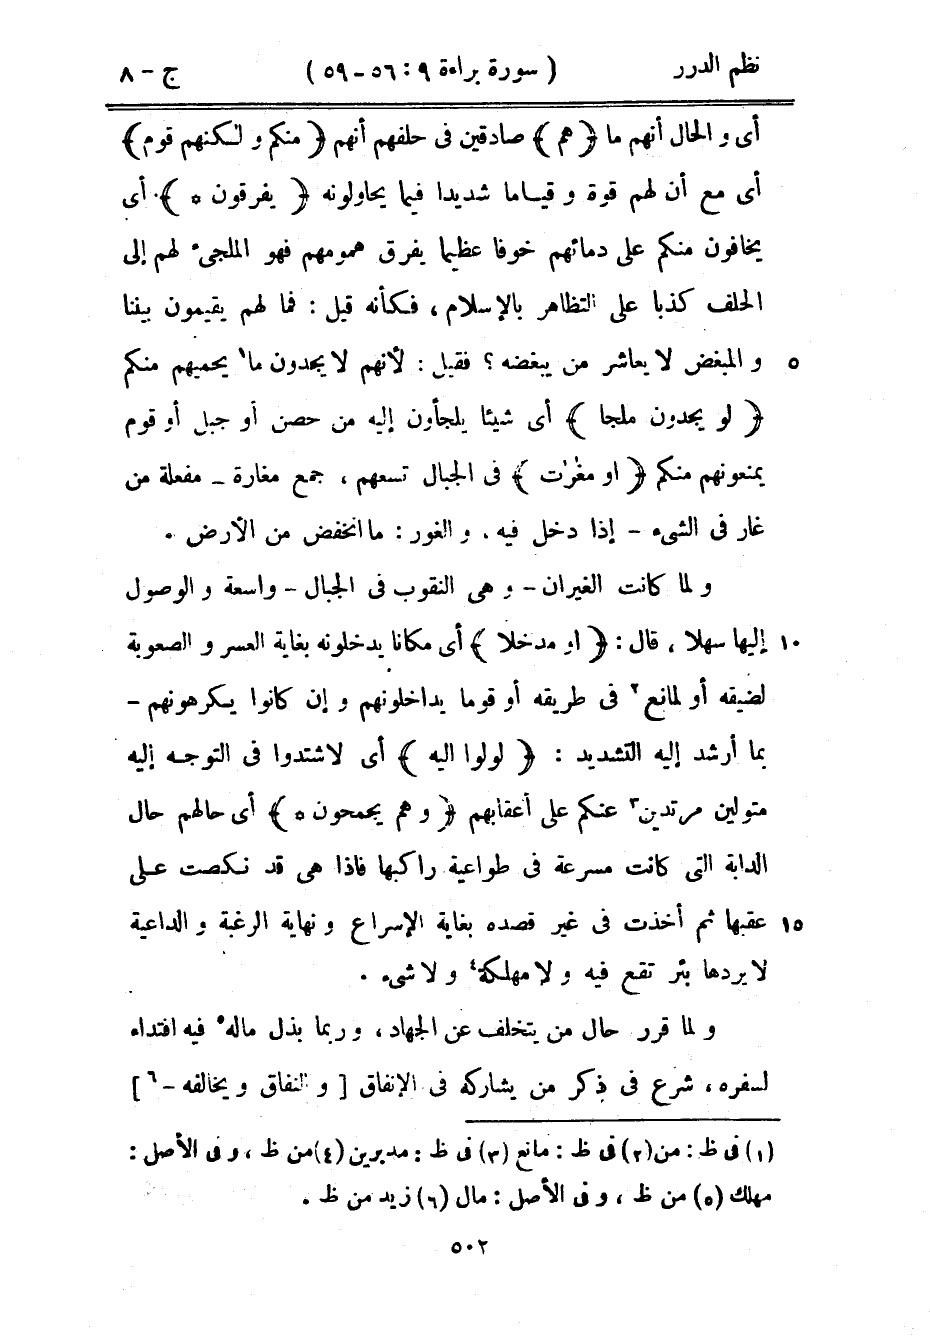 نظم الدرر ( سورة براءة ٩ : ٥٦ – ٥٩ ) ج – ٨
أى و الحال أنهم ما ﴿ هم ﴾ صادقين فى حلفهم أنهم ﴿ منكم و لكنهم قوم ﴾
أى مع أن لهم قوة و قياما شديدا فيما يحاولونه ﴿ يفرقون * ﴾ أى
يخافون منكم على دمائهم خوفا عظيما يفرق همومهم فهو الملجىء لهم إلى
الحلف كذبا على التظاهر بالإسلام ، فكأنه قيل : فما لهم يقيمون بيننا
٥ و المبغض لا يعاشر من يبغضه ؟ فقيل : لأنهم لا يجدون ما١ يحميهم منكم
﴿ لو يجدون ملجا ﴾ أى شيئا يلجأون إليه من حصن أو جبل أو قوم
يمنعونهم منكم ﴿ او مغٰرٰت ﴾ فى الجبال تسعهم ، جمع مغارة – مفعلة من
غار فى الشىء – إذا دخل فيه ، و الغور : ما انخفض من الأرض .
و لما كانت الغيران – و هى النقوب فى الجبال – واسعة و الوصول
١٠ إليها سهلا ، قال : ﴿ او مدخلا ﴾ أى مكانا يدخلونه بغاية العسر و الصعوبة
لضيقه أو لمانع٢ فى طريقه أو قوما يداخلونهم و إن كانوا يكرهونهم –
بما أرشد إليه التشديد : ﴿ لولوا اليه ﴾ أى لاشتدوا فى التوجه إليه
متولين مرتدين٣ عنكم على أعقابهم ﴿ و هم يجمحون * ﴾ أى حالهم حال
الدابة التى كانت مسرعة فى طواعية راكبها فاذا هى قد نكصت على
١٥ عقبها ثم أخذت فى غير قصده بغاية الإسراع و نهاية الرغبة و الداعية
لا يردها بئر تقع فيه و لا مهلكة٤ و لا شىء .
و لما قرر حال من يتخلف عن الجهاد ، و ربما بذل ماله٥ فيه افتداء
لسفره ، شرع فى ذكر من يشاركه فى الإنفاق [ و النفاق و يخالفه –٦ ]
(١) فى ظ : من (٢) فى ظ : مانع (٣) فى ظ : مدبرين (٤) من ظ ، و فى الأصل :
مهلك (٥) من ظ ، و فى الأصل : مال (٦) زيد من ظ .
٥٠٢